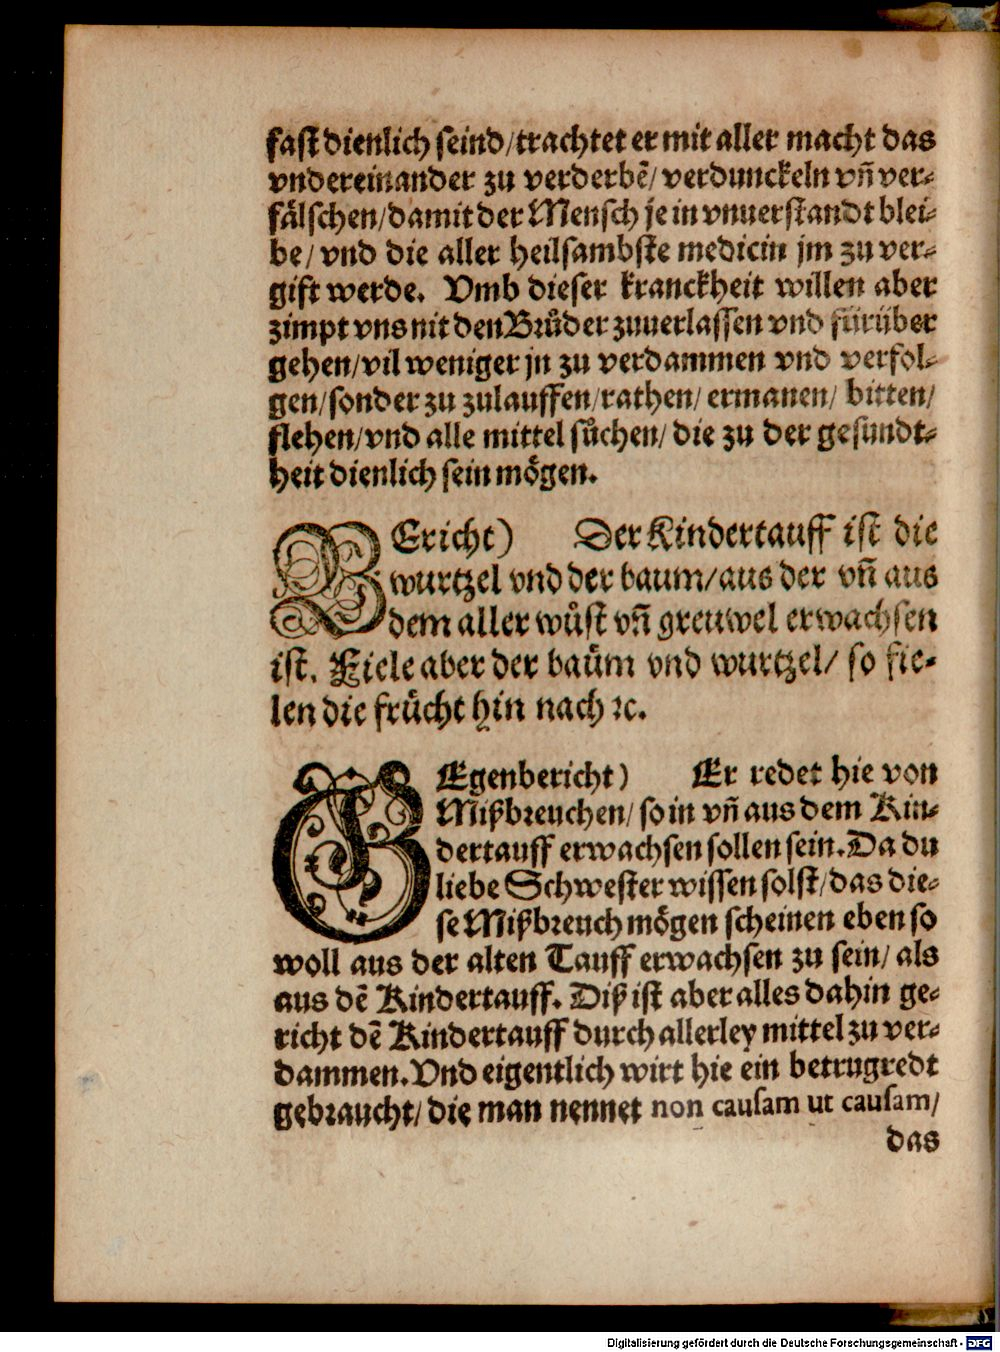 fast dienlich seind/trachtet er mit aller macht das
vndereinander zu verderbẽ/verdunckeln vñ ver⸗
fälschen/damit der Mensch je in vnuerstandt blei⸗
be/ vnd die aller heilsambste medicin jm zu ver⸗
gift werde. Vmb dieser kranckheit willen aber
zimpt vns nit den Brůder zuuerlassen vnd fürüber
gehen/vil weniger jn zu verdammen vnd verfol⸗
gen/sonder zu zulauffen/rathen/ ermanen/ bitten/
flehen/vnd alle mittel sůchen/ die zu der gesundt⸗
heit dienlich sein mögen.
BEricht) Der Kindertauff ist die
wurtzel vnd der baum/aus der vñ aus
dem aller wůst vñ greuwel erwachsen
ist. Fiele aber der baům vnd wurtzel/ so fie⸗
len die frücht hin nach ꝛc.
GEgenbericht) Er redet hie von
Mißbreuchen/ so in vñ aus dem Kin⸗
dertauff erwachsen sollen sein. Da du
liebe Schwester wissen solst/das die⸗
se Mißbreuch mögen scheinen eben so
woll aus der alten Tauff erwachsen zu sein/ als
aus dẽ Kindertauff. Diß ist aber alles dahin ge⸗
richt dẽ Kindertauff durch allerley mittel zu ver⸗
dammen. Vnd eigentlich wirt hie ein betrugredt
gebraucht/ die man nennet non causam ut causam/
das
Digitalisierung gefördert durch die Deutsche Forschungsgemeinschaft - DFG